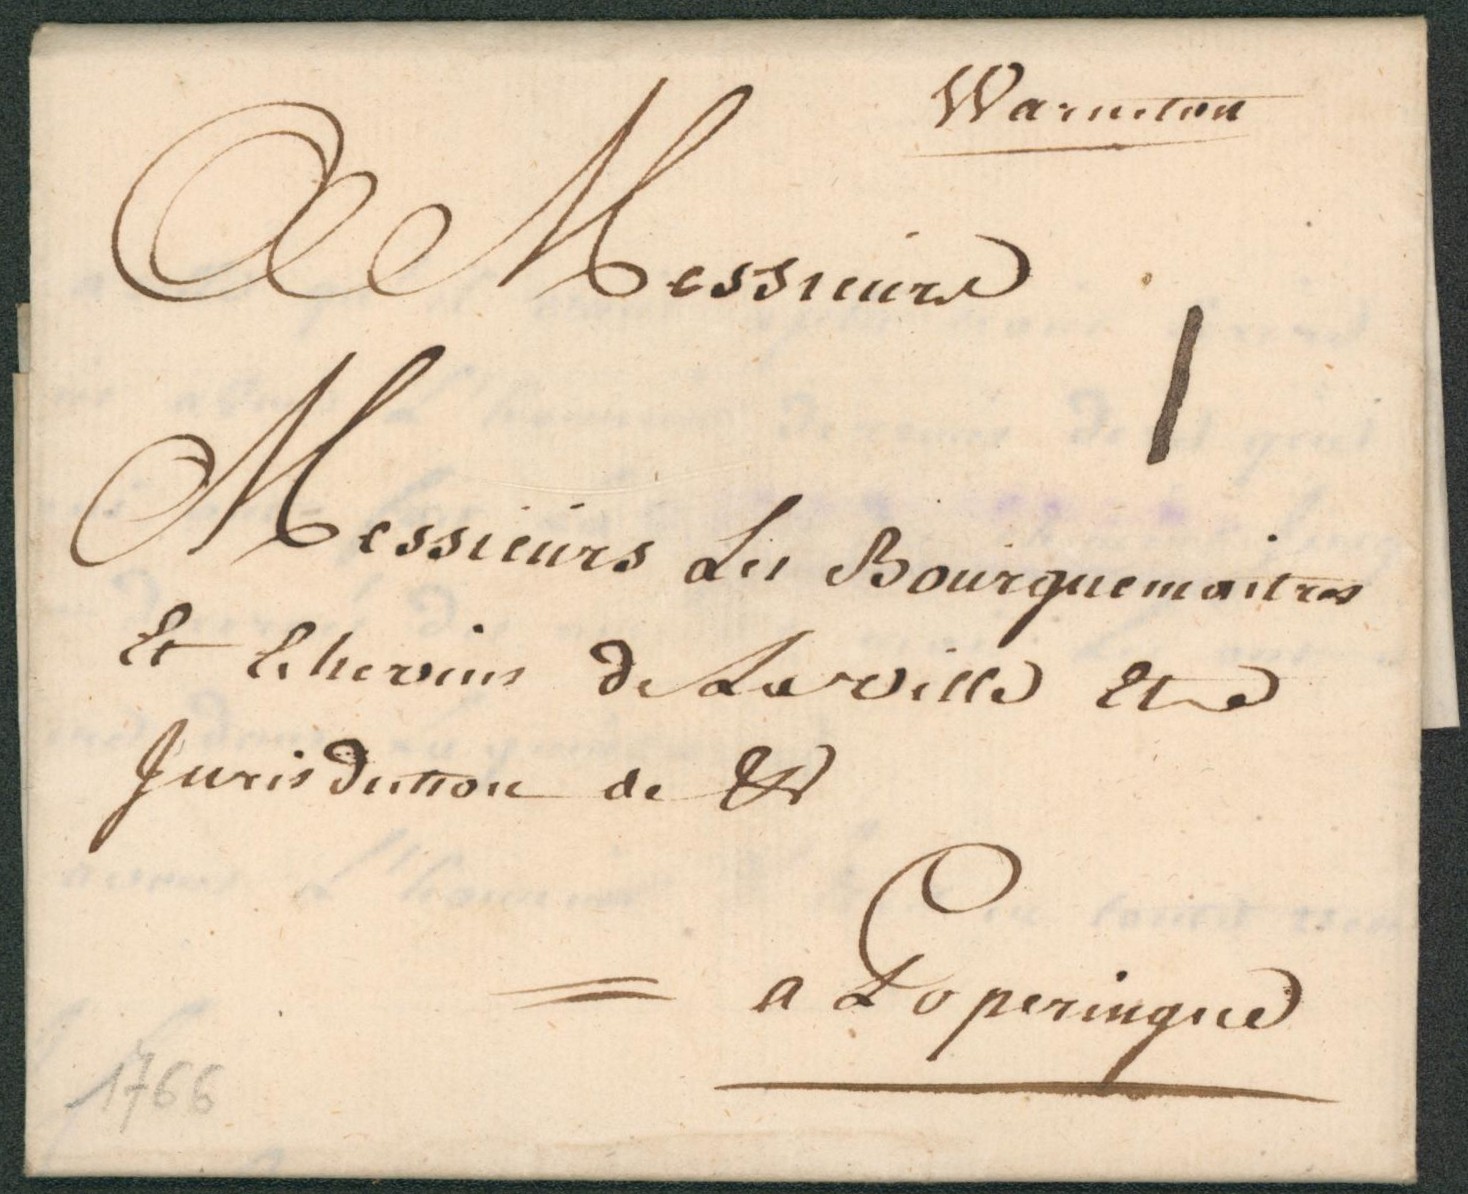 Warneton
A Messieurs
1
Messieurs Les Bourguemaitres
Et Echevins de La ville Et
Jurisdiction de &
a Poperingue
1766